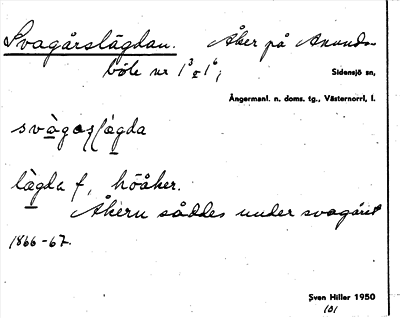 Svagårslägdan. Åker på Anunds-
böle nr 1³ & 1⁶,
Sidensjö sn,
Ångermanl. n. doms. tg., Västernorrl. l.
lägda f, höåker.
Åkern såddes under svagåret
1866-67.
Sven Hiller 1950
101